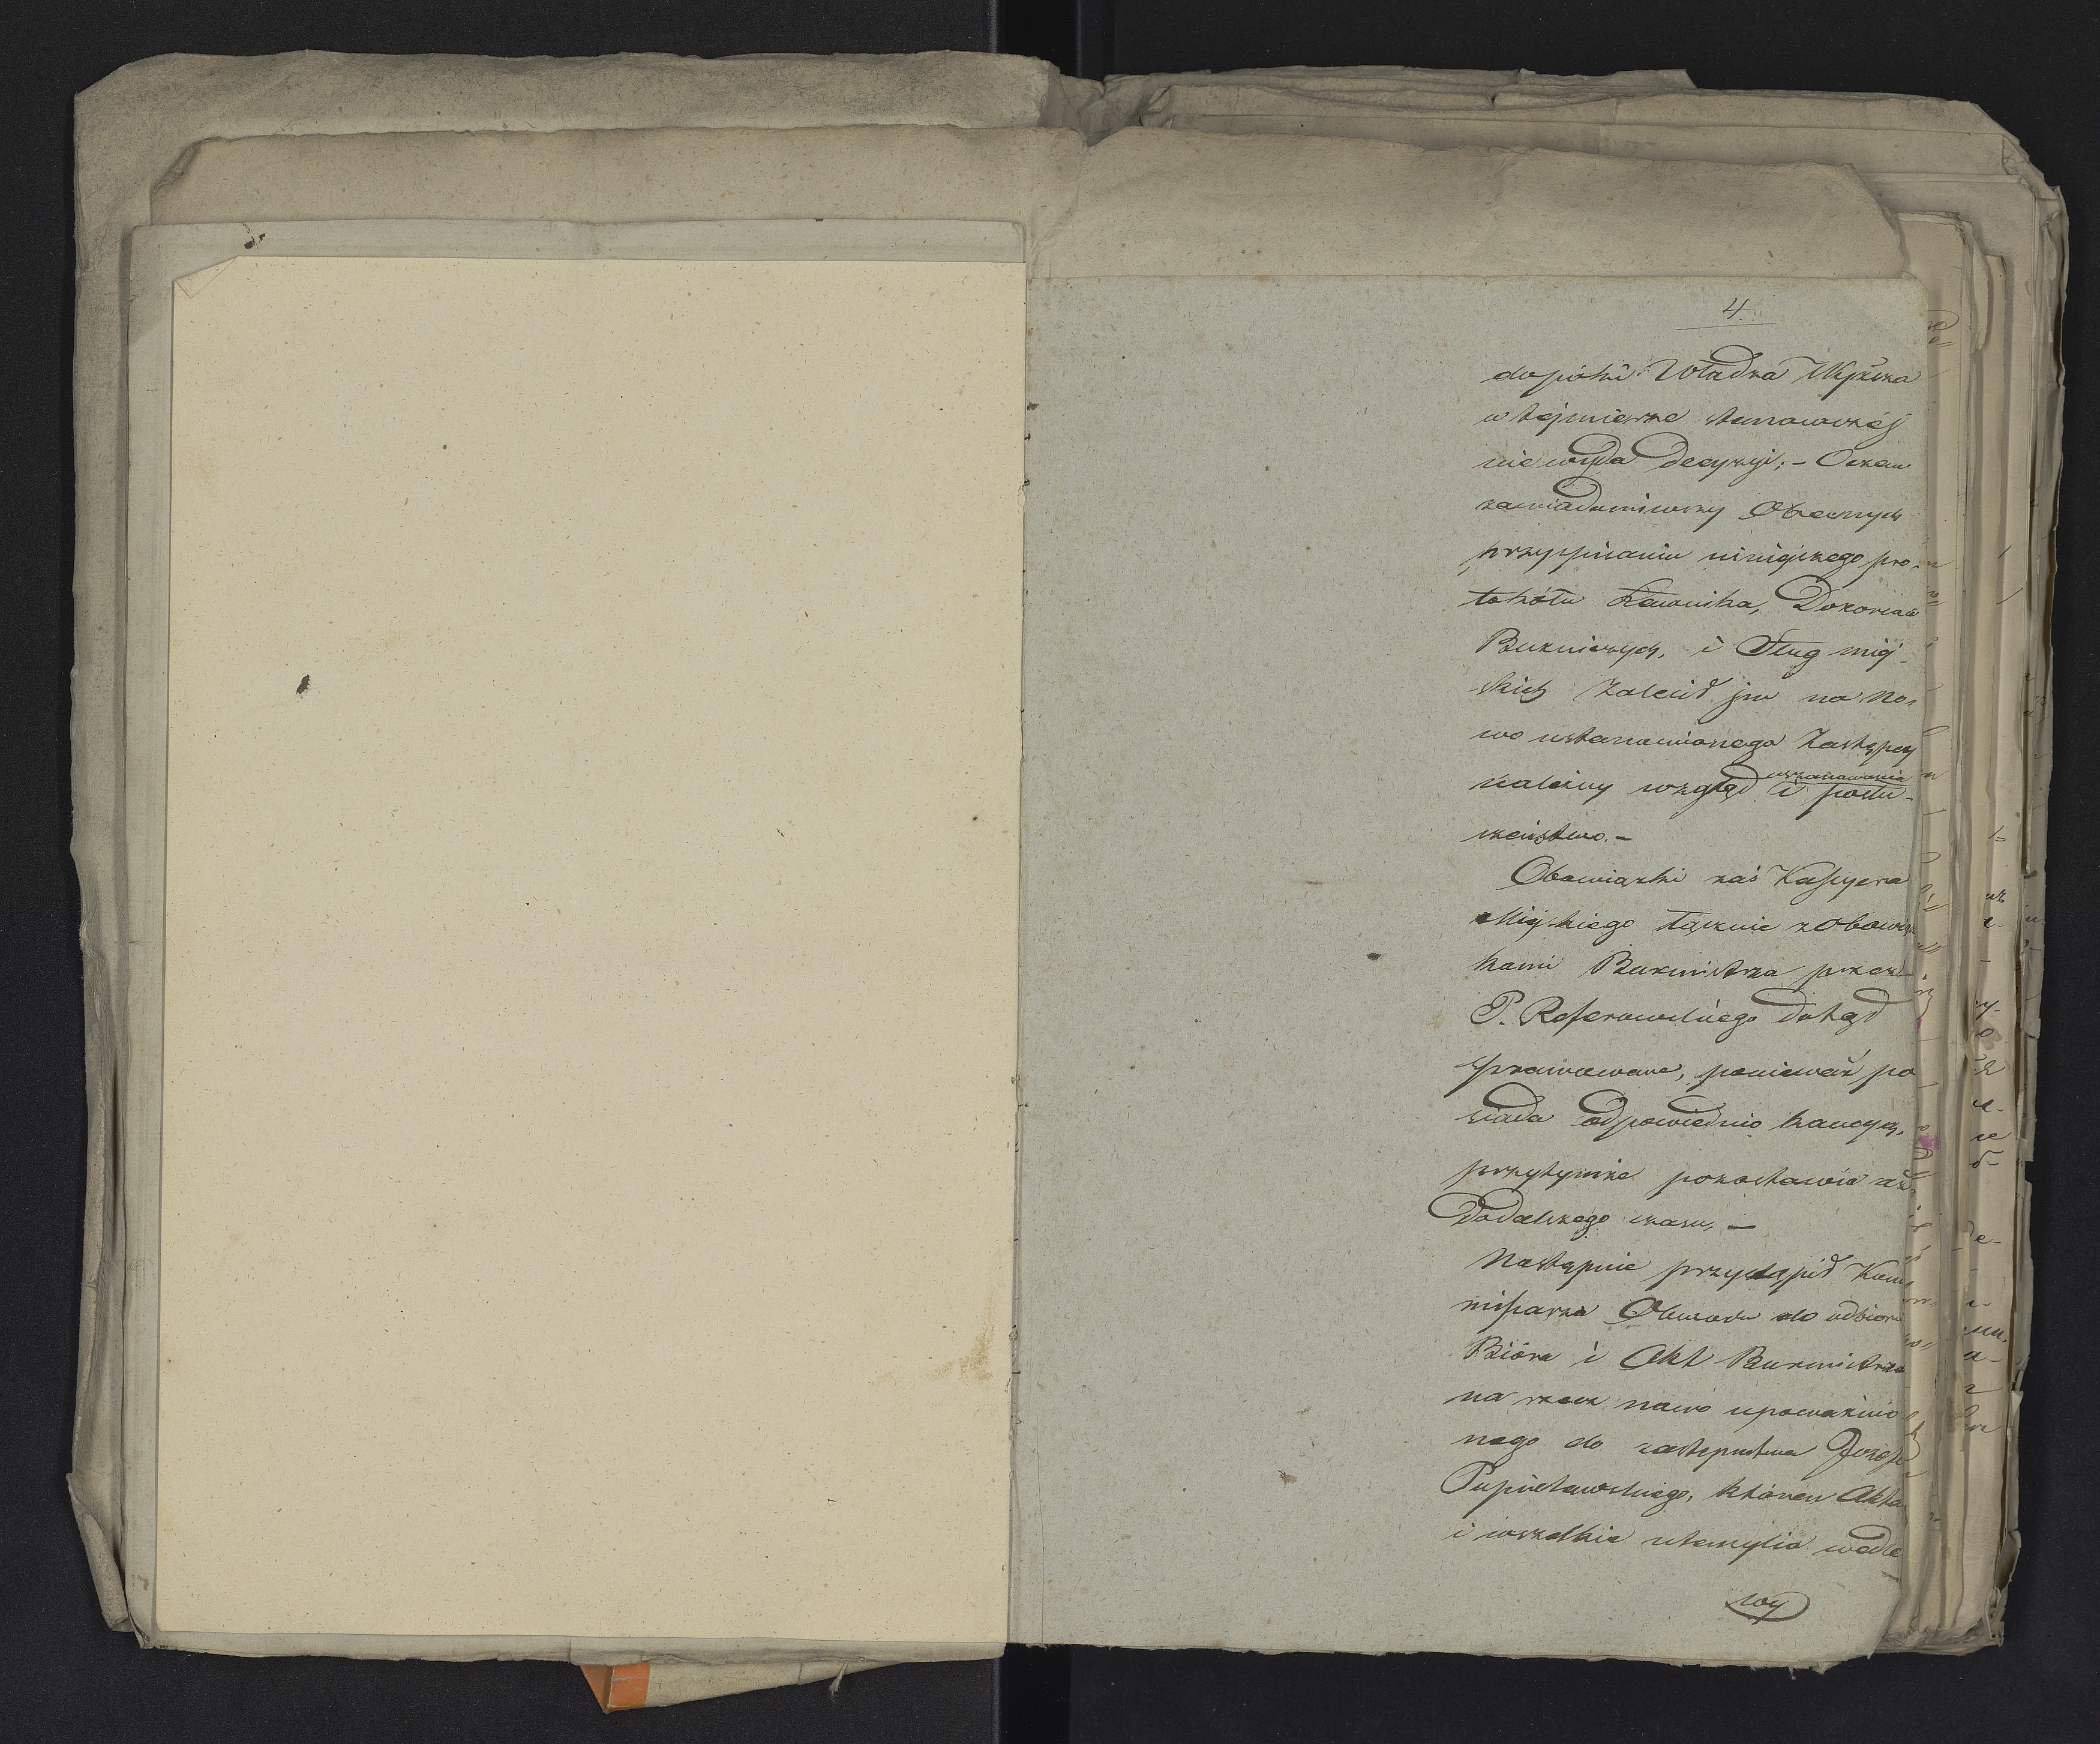 4
dopóki Władza Wyższa
w tejmierze stanowczéj
niewyda Decyzyi; – Oczem
zawiadomiwszy Obecnych
przyspisaniu niniejszego pro-
tokółu Ławnika, Dozorców
Bużniczych, i Sług miej-
skich zalecił jm na no-
wo ustanowionego Zastępcy
uszanowania
należny wzgląd i posłu-
szeństwo. –
Obowiązki zaś Kassyera
Miejskiego łącznie z Obowiąz
kami Burmistrza przez
P. dotąd
sprawowane, ponieważ po
siada odpowiednio kaucyą,
przytymże pozostawia się
Dodalszego czasu, –
Następnie przystąpił Kom
missarz Obwodu do odbioru
Bióra i Akt Burmistrza
na rzecz nowo upoważnio
nego do zastępstwa Józefa
któren Akta
i wszelkie utensylia wedle
wy